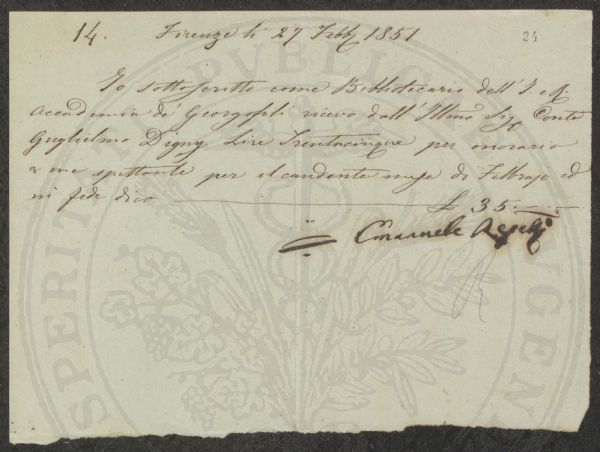 14. Firenze li 27 Febb. 1851 24
Io sottoscritto come Bibliotecario dell'I. e R.
Accademia de Georgofili ricevo dall'Illmo Sig. Conte
Guglielmo Digny Lire Trentacinque per onorario
a me spettante per il candente mese di Febbrajo ed
in fede dico £ 35. —
Emanuele Repetti
PROSPERITÀ PUBLICA